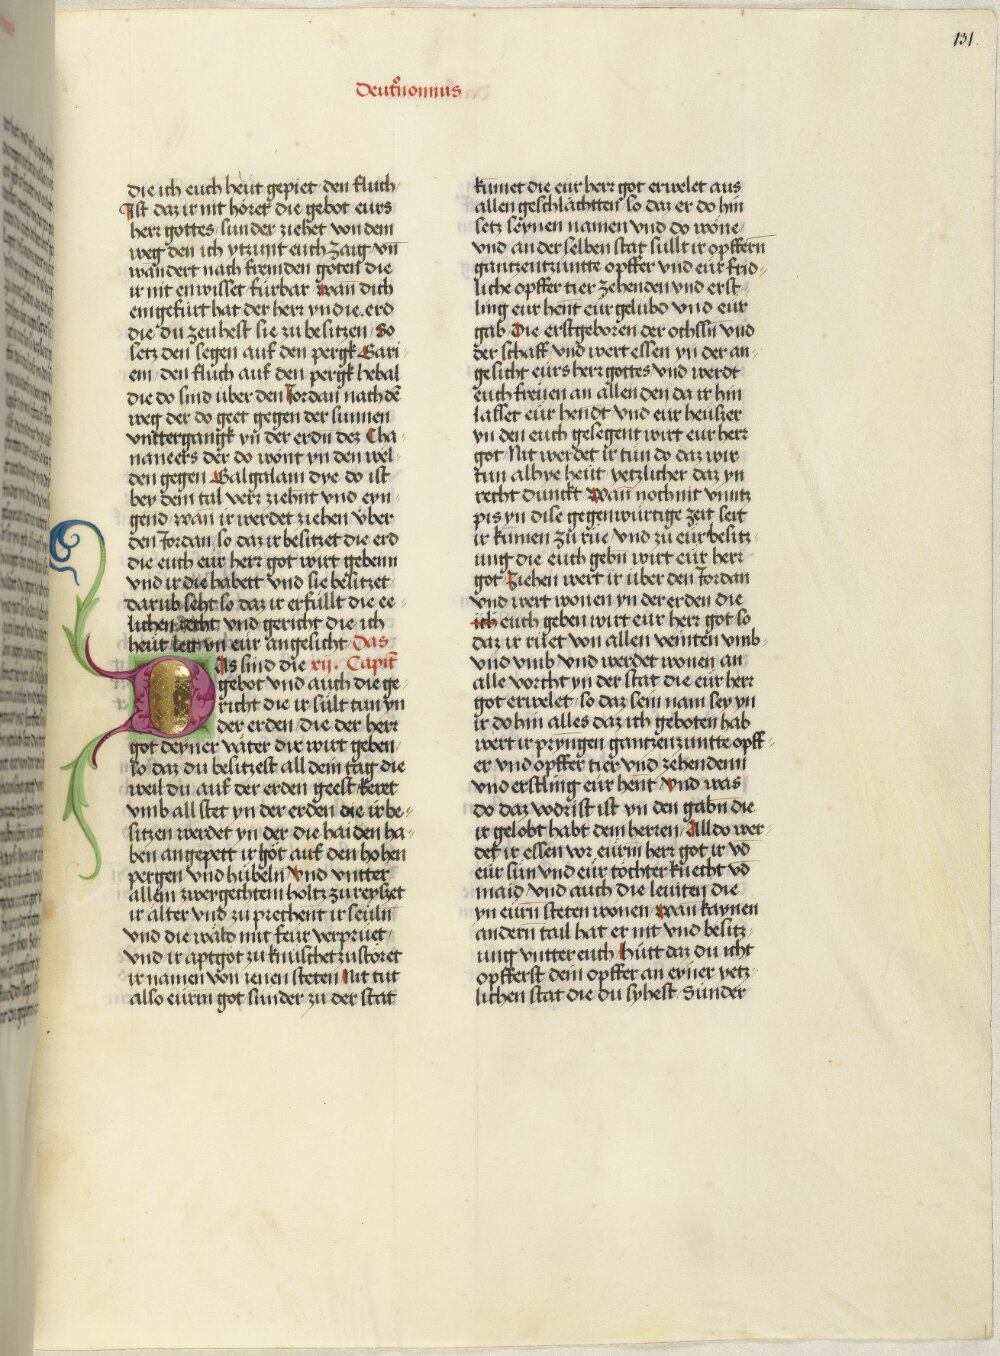 131.
Deut̃nomius
die ich euch heüt gepiet den fluch
Ist daz ir nit höret die gebot eurs
herr gottes sunder ziehet von dem
weg den ich ytzunt euch zaig vn̄
wandert nach fremden göten die
ir nit en wisset fürbar wan dich
eingefürt hat der herr yn die erd
die du zeuhest sie zu besitzen So
setz den segen auf den pergk Gari-
em den fluch auf den pergk hebal
die do sind über den Jordan nach dē
weg der do geet gegen der sunnen
vnttergangk yn der erdn dez Cha-
naneers der do wont yn den wel-
den gegen Galgalam dye do ist
bey dem tal verr ziehnt vnd eyn-
gend wan ir werdet ziehen über
den Jordan so daz ir besitzet die erd
die euch eür herr got wirt gebenn
vnd ir die habett vnd sie besitzet
darub seht so daz ir erfüllt die ee-
lichen recht vnd gericht die ich
heüt leg yn eür angesicht Das
Als sind die xij. Capit̃
gebot vnd auch die ge-
richt die ir sült tun yn
der erden die der herr
got deyner väter dir wirt geben
so daz du besitzest all dein tag die
weil du auf der erden geest keret
vmb all stet yn der erden die ir be-
sitzen werdet yn der die haiden ha-
ben angepett ir göt auf den hohen
pergen vnd hübeln Vnd vntter
allem zweygechtem holtz zureyszet
ir alter vnd zu prechent ir seüln
vnd die wäld mit feür verprüet
vnd ir aptgot zu knischet zustoret
ir namen von ienen steten Nit tut
also eürm got sunder zu der stat
kumet die eür herr got erwelet aus
allen geschlächtten so daz er do hin
setz seynen namen vnd do wone
vnd an der selben stat süllt ir opffern
gantzentzüntte opffer vnd eür frid-
liche opffer tier zehenden vnd erst-
ling eür hent eür gelübd vnd eür
gab Die erstgeboren der ochssn vnd
der schaff vnd wert essen yn der an-
gesicht eürs herr gottes vnd werdt
euch freüen an allen den da ir hin
lasset eür hendt vnd eür heüszer
yn den euch gesegent wirt eür herr
got Nit werdet ir tun do daz wir
tun alhye heüt yetzlicher daz yn
recht dunckt Wan noch nit vnntz
pis yn dise gegenwürtige zeit seit
ir kumen zu rüe vnd zu eür besitz-
ung die euch gebn wirt eür herr
got Ziehen wert ir über den Jordan
vnd wert wonen yn der erden die
ich euch geben wirt eür herr got so
daz ir rüet von allen veinten vmb-
vnd vmb vnd werdet wonen an
alle vorcht yn der stat die eür herr
got erwelet so daz sein nam sey yn
ir do hin alles daz ich geboten hab
wert ir pryngen gantzenzuntte opff-
er vnd opffer tier vnd zehendenn
vnd erstling eür hent vnd was
do daz vodrist ist yn den gabn die
ir gelobt habt dem herren Alldo wer-
det ir essen vor eürm herr got ir vd̄
eür sün vnd eür töchter knecht vd̄
maid vnd auch die leuiten die
yn eürn steten wonen wan kaynen
andern tail hat er nit vnd besitz-
ung vntter euch hütt daz du icht
opfferst dein opffer an eyner yetz-
lichen stat die du syhest Sunder